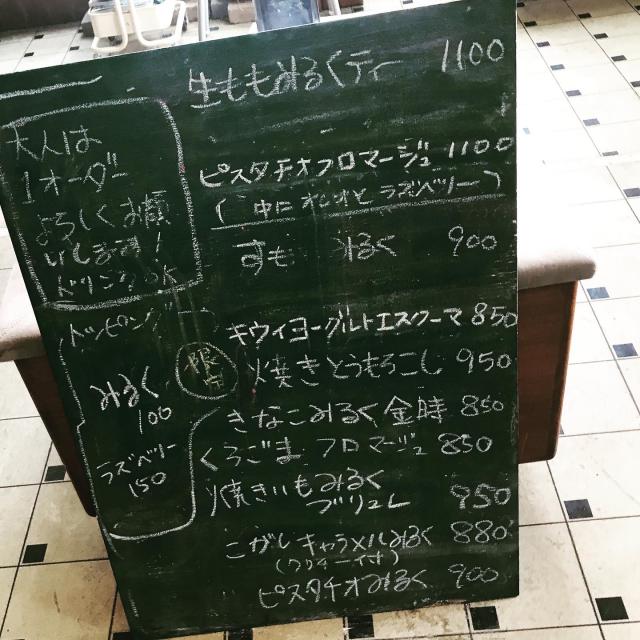 生ももみるくティー 1100
ピスタチオフロマージュ 1100
(中にオレオとラズベリー)
すも みるく 900
キウイヨーグルトエスクーマ 850
焼きとうもろこし 950
きなこみるく金時 850
くろごまフロマージュ 850
焼きいもみるく
ブリュレ 850
こがしキャラメルみるく 880
(クッキー付)
ピスタチオみるく 900
大人は
1オーダー
よろしくお願
いします!
ドリンク
トッピング
みるく
100
ラズベリー
150